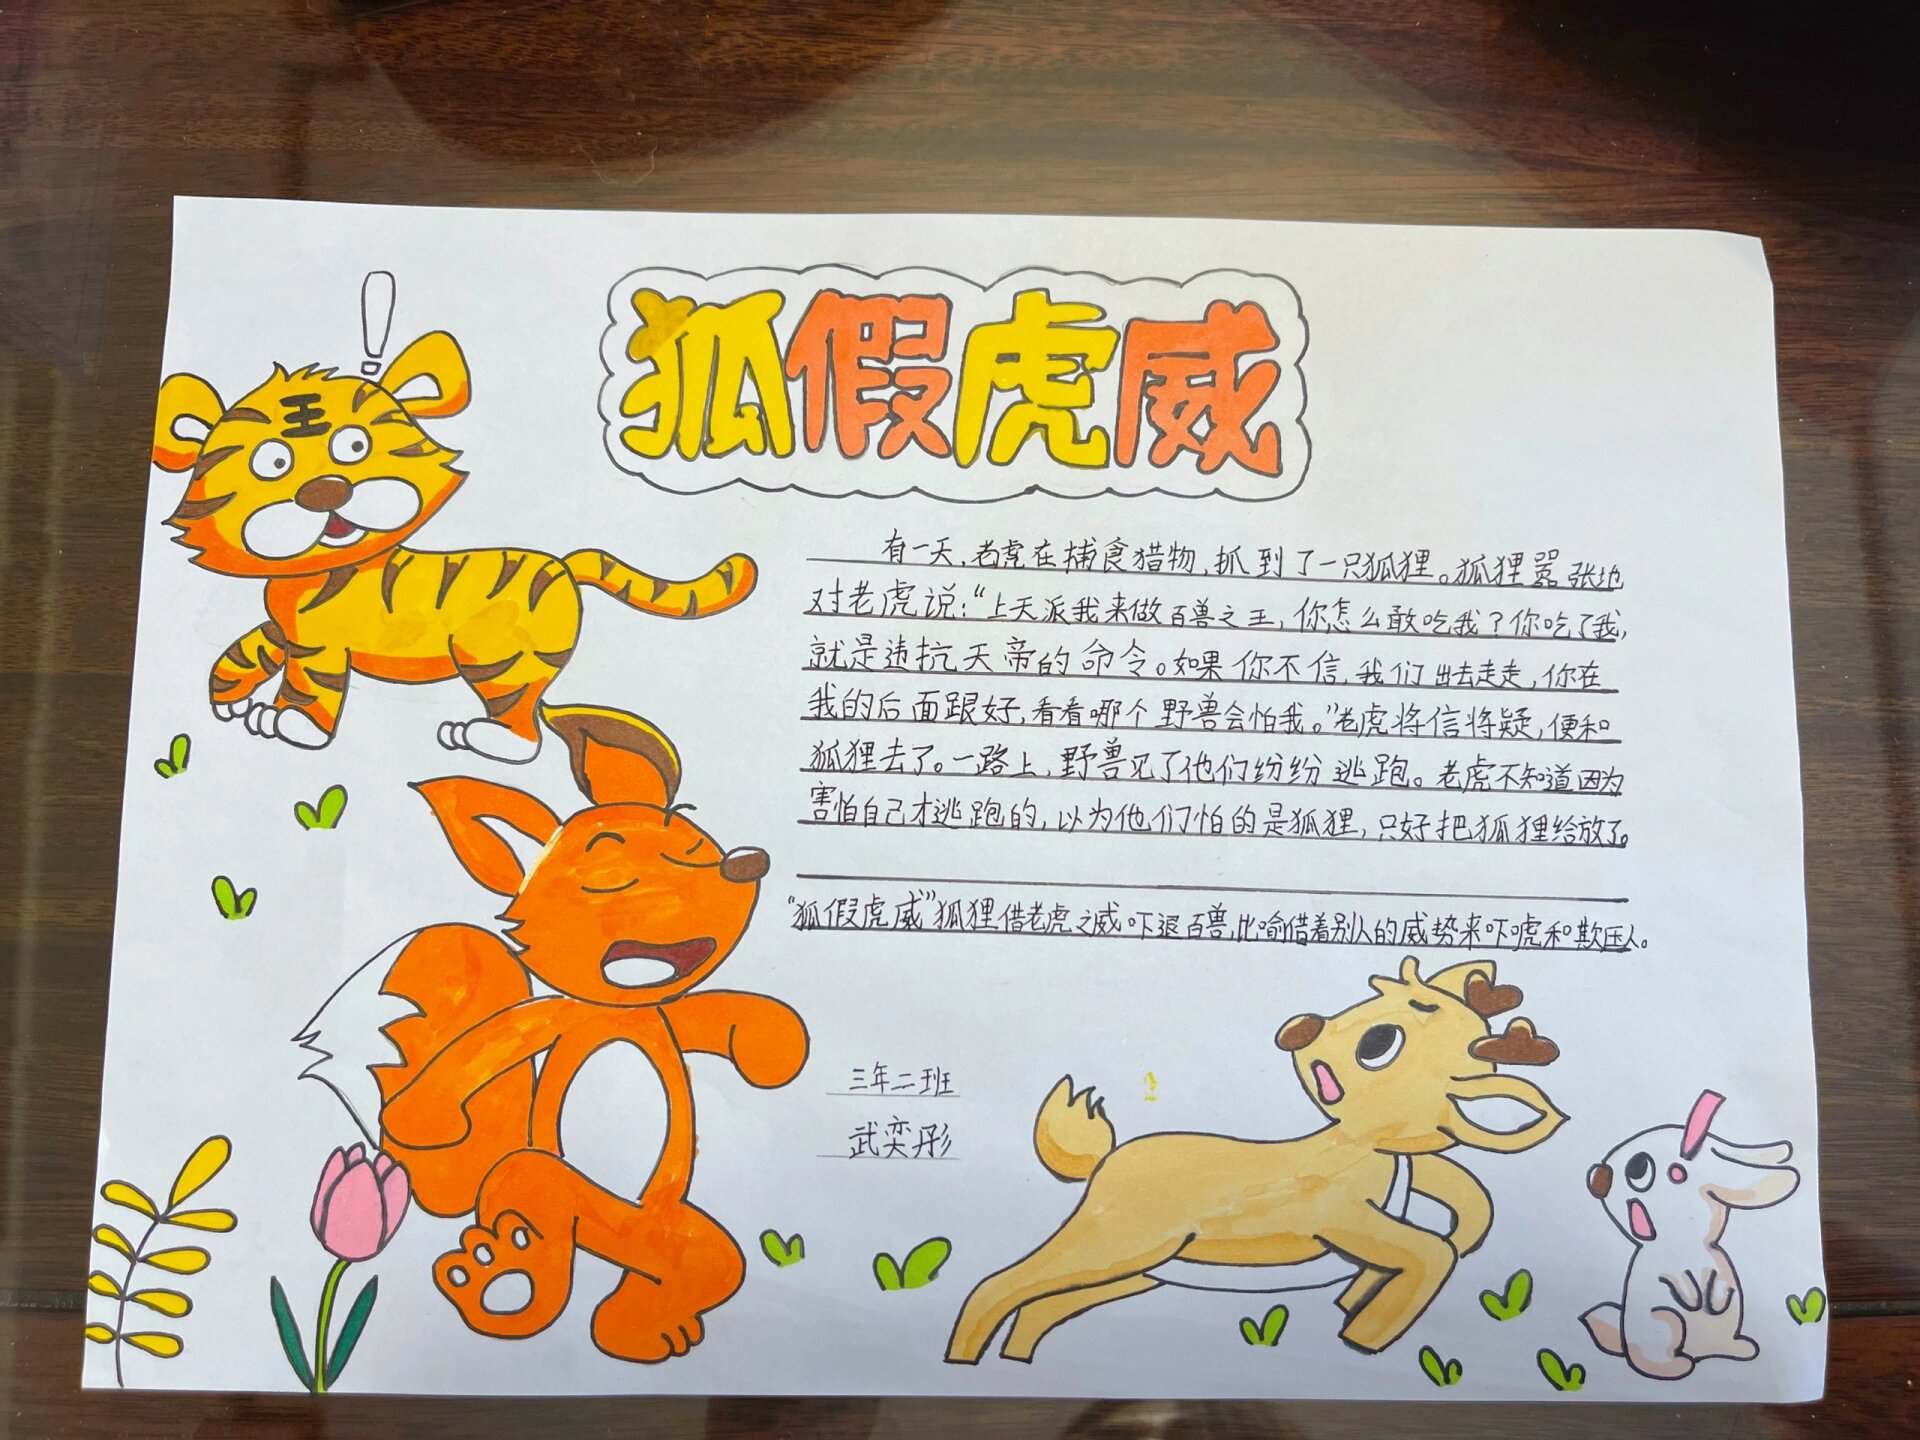 狐假虎威
王
有一天,老虎在捕食猎物,抓到了一只狐狸。狐狸嚣张地
对老虎说:“上天派我来做百兽之王,你怎么敢吃我?你吃了我,
就是违抗天帝的命令。如果你不信,我们出去走走,你在
我的后面跟好,看看哪个野兽会怕我。”老虎将信将疑,便和
狐狸去了。一路上,野兽见了他们纷纷逃跑。老虎不知道因为
害怕自己才逃跑的,以为他们怕的是狐狸,只好把狐狸给放了。
“狐假虎威”狐狸借老虎之威吓退百兽,比喻借着别人的威势来吓唬和欺压人。
三年二班
武奕彤